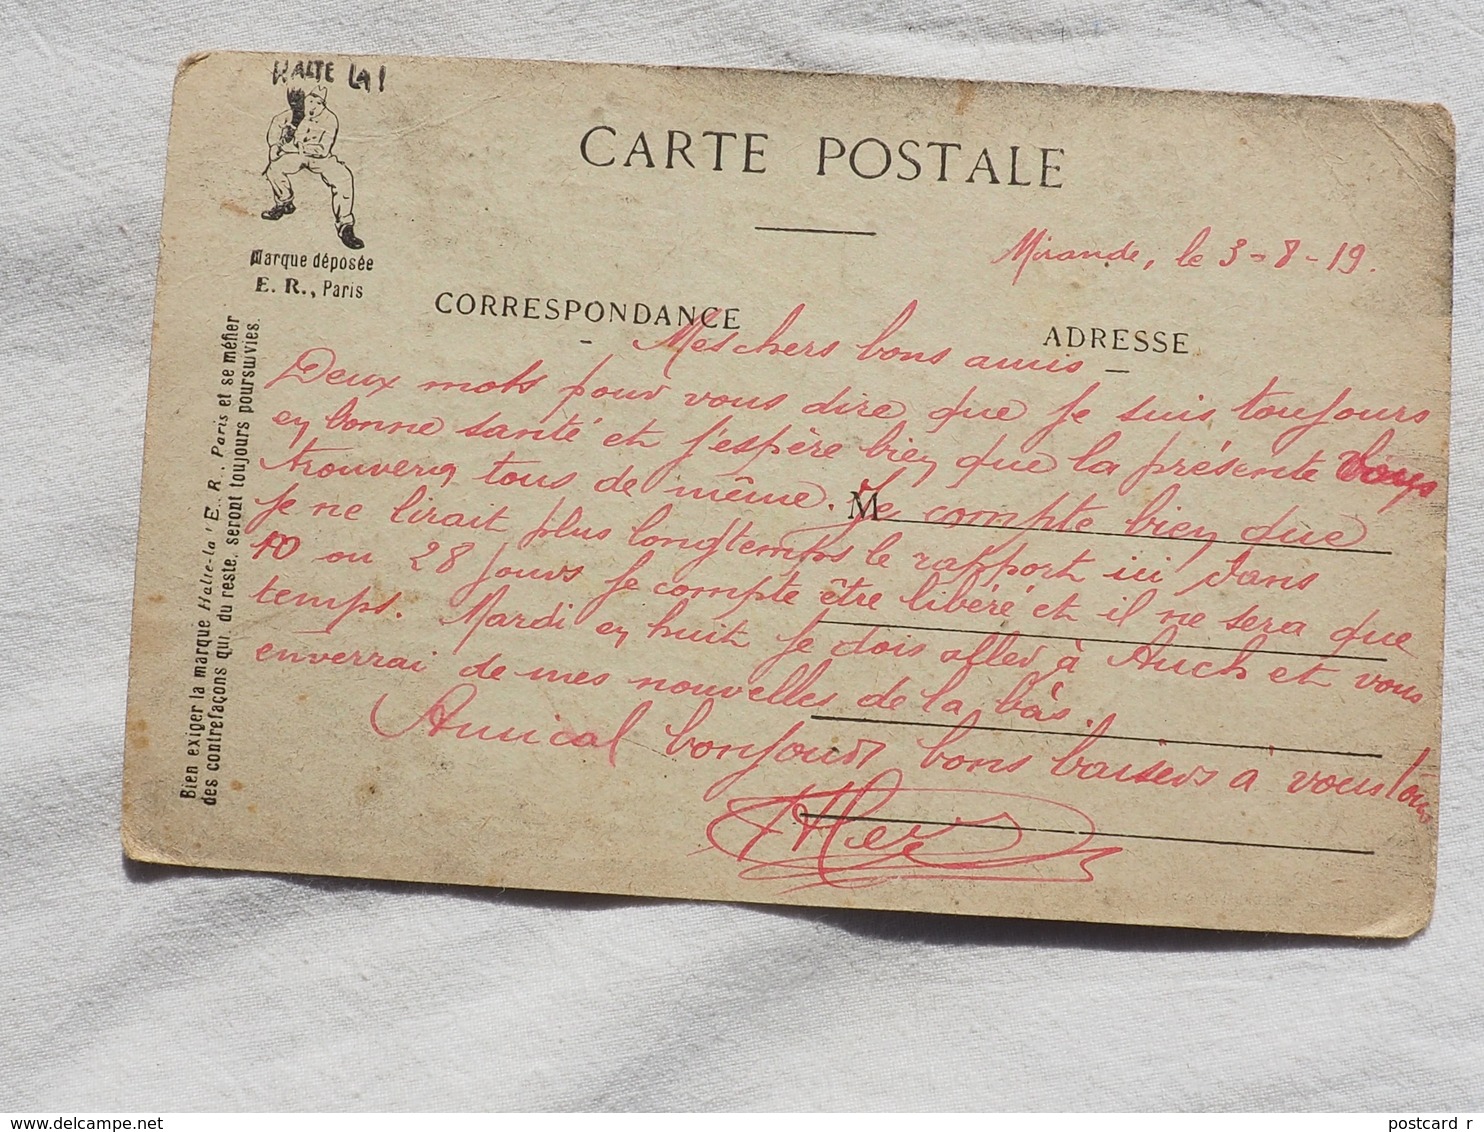 HALTE LA !
CARTE POSTALE
Mirande, le 3-8-19.
Marque déposée
E. R., Paris
CORRESPONDANCE
ADRESSE
Bien exiger la marque Halte-là ! E. R. Paris et se méfier
des contrefaçons qui, du reste, seront toujours poursuivies.
Mes chers bons amis
Deux mots pour vous dire que je suis toujours
en bonne santé et j'espère bien que la présente vous
trouverez tous de même. Je compte bien que
M
je ne lirait plus longtemps le rapport ici dans
ou 28 jours je compte être libéré et il ne sera que
temps. Mardi en huit je dois aller à Auch et vous
enverrai de mes nouvelles de la bàs.
Amical bonjour bons baisers à vous tous
postcard r
www.delcampe.net